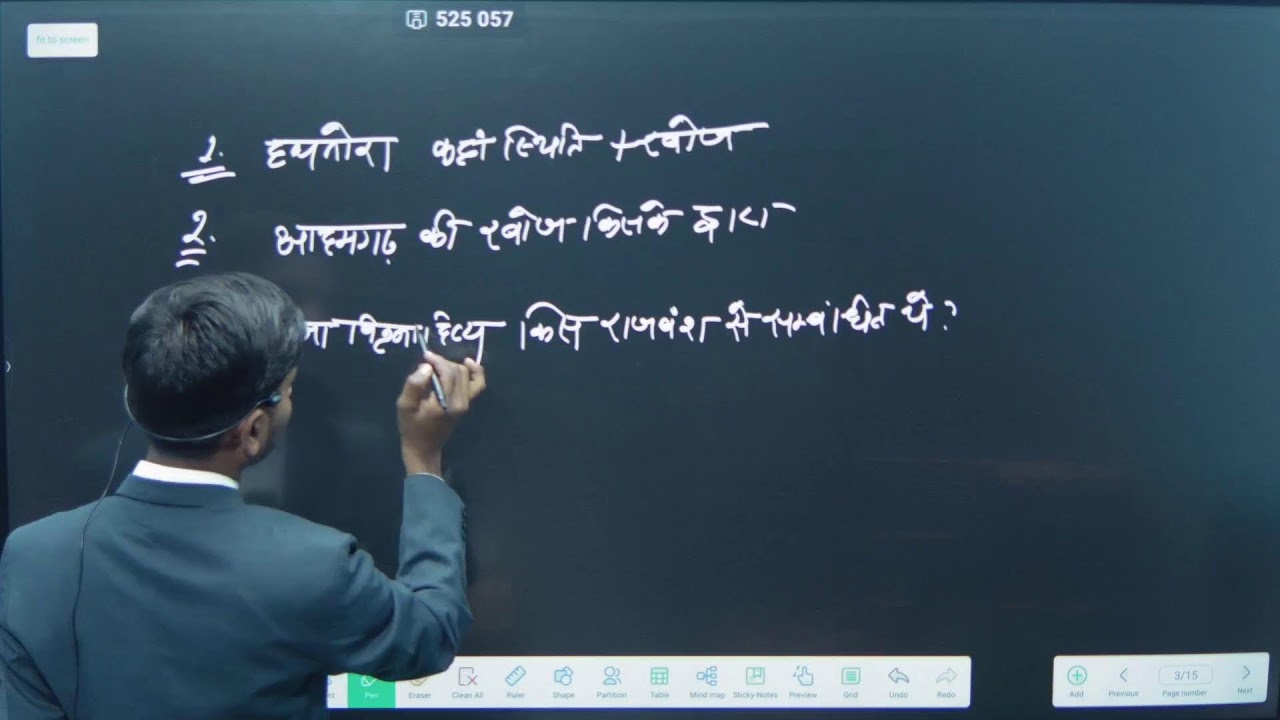 525 057
fit to screen
1. हयतोरा कहां स्थिति + खोज
2. आहमगढ़ की खोज किसके द्वारा
किस राजवंश से सम्बंधित थे?
Pen Eraser Clean All Ruler Shape Partition Table Mind map Sticky-Notes Preview Grid Undo Redo
Add Previous 3/15 Page number Next